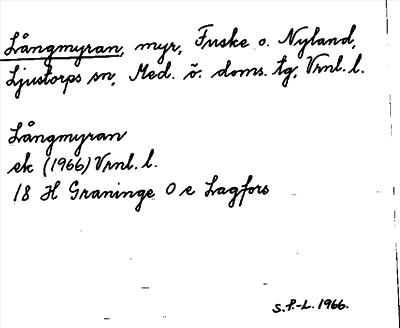 Långmyran, myr, Fuske o. Nyland,
Ljustorps sn, Med. ö. doms. tg, Vrnl. l.
Långmyran
ek (1966) Vrnl. l.
18 H Graninge O e Lagfors
S.P.-L. 1966.